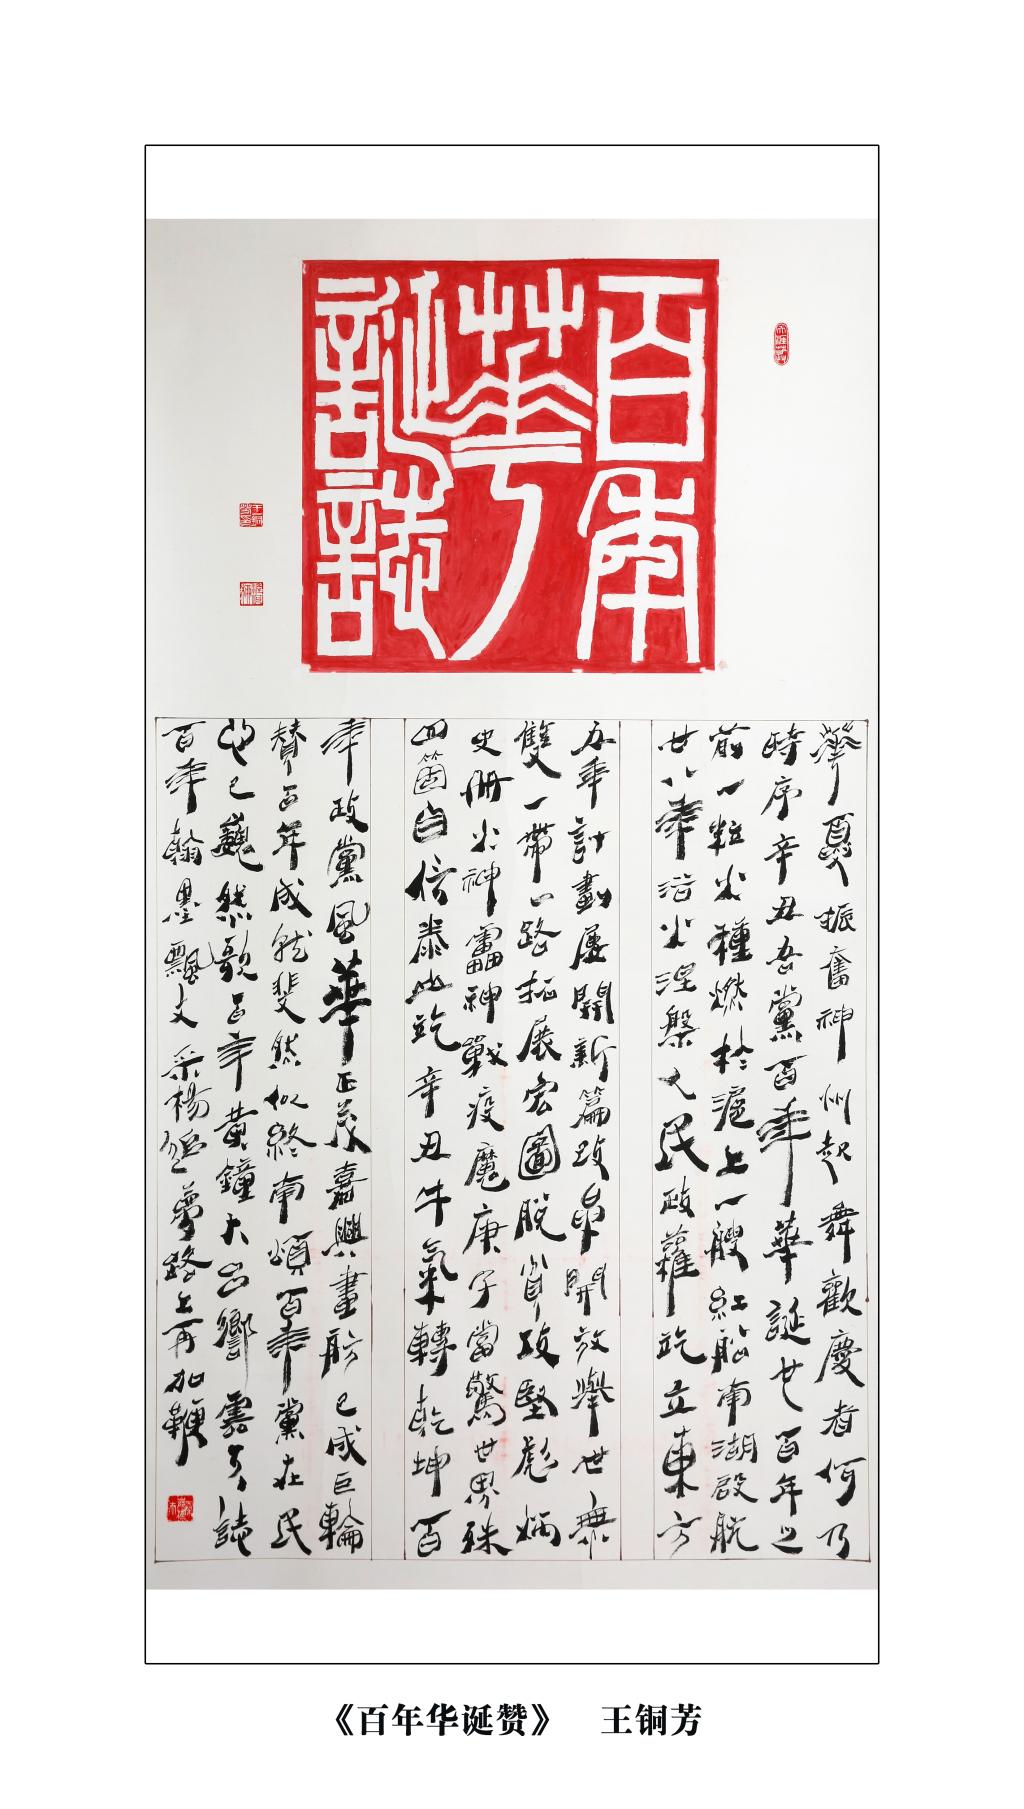 百年華誕誌
華夏振奮神州起舞歡慶者何乃
時序辛丑吾黨百年華誕也百年之
前一粒火種燃於滬上一艘紅船南湖啟航
廿八年浴火涅槃人民政權屹立東方
五年計劃屢開新篇改革開放舉世無
雙一帶一路拓展宏圖脫貧攻堅彪炳
史冊火神雷神戰疫魔庚子當驚世界殊
四箇自信泰山屹辛丑牛氣轉乾坤百
年政黨風華正茂嘉興畫舫已成巨輪
贊百年成就斐然似終南頌百年黨在民
心已巍然歌百年黃鐘大呂響雲天誌
百年翰墨飄文采楊夢路上再加鞭
《百年华诞赞》 王铜芳